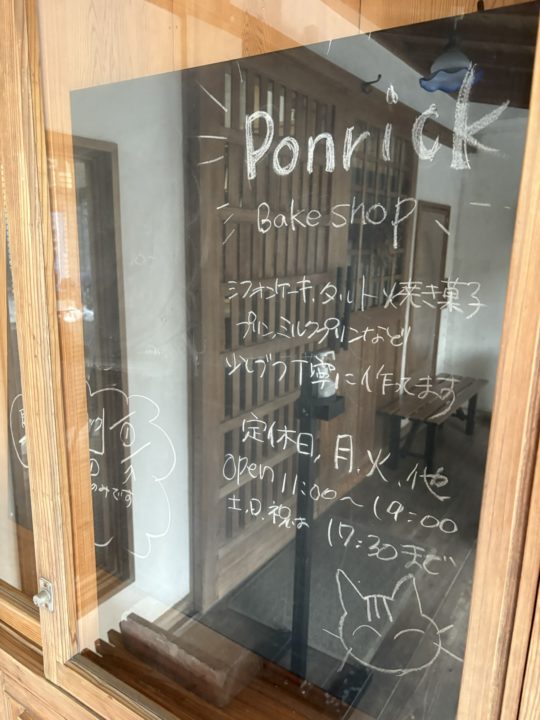 Ponrick
Bake shop
シフォンケーキ、タルト、焼き菓子
プリン、ミルクプリンなど
少しづつ丁寧に作ってます
定休日、月、火、他
open 11:00〜19:00
土、日、祝は 17:30まで
のみです